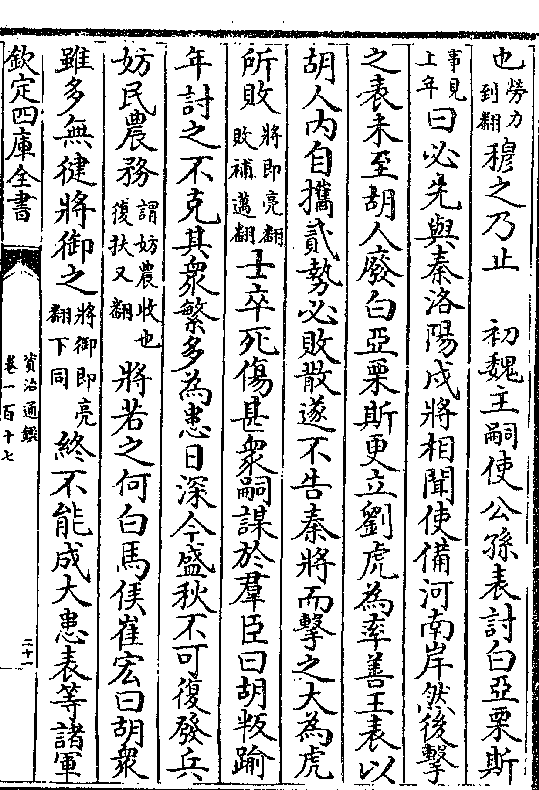 也勞力到翻穆之乃止　初魏主嗣使公孫表討白亞栗斯
事見上年曰必先與秦洛陽戍將相聞使備河南岸然後擊
之表未至胡人廢白亞栗斯更立劉虎為率善王表以
胡人內自攜貳勢必敗散遂不告秦將而擊之大為虎
所敗將即亮翻敗補邁翻士卒死傷甚衆嗣謀於羣臣曰胡叛踰
年討之不克其衆繁多為患日深今盛秋不可復發兵
妨民農務謂妨農收也復扶又翻將若之何白馬侯崔宏曰胡衆
雖多無健將御之將御即亮翻下同終不能成大患表等諸軍
欽定四庫全書
資治通鑑
卷一百十七
二十一